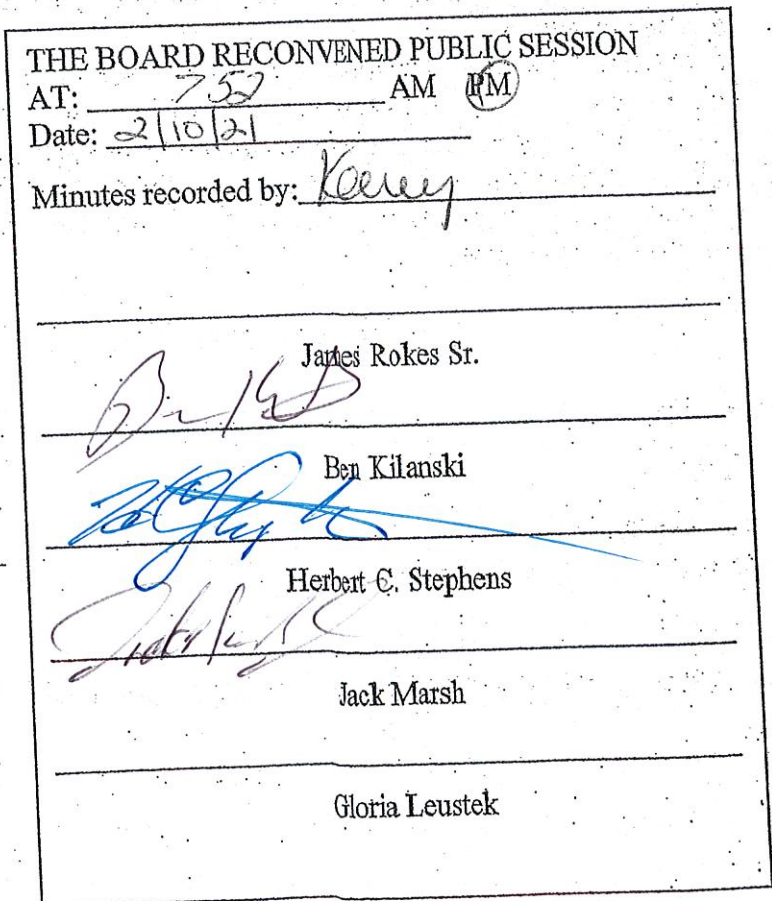 THE BOARD RECONVENED PUBLIC SESSION
AT: 752 AM PM
Date: 2/10/21
Minutes recorded by:
James Rokes Sr.
Ben Kilanski
Herbert C. Stephens
Jack Marsh
Gloria Leustek